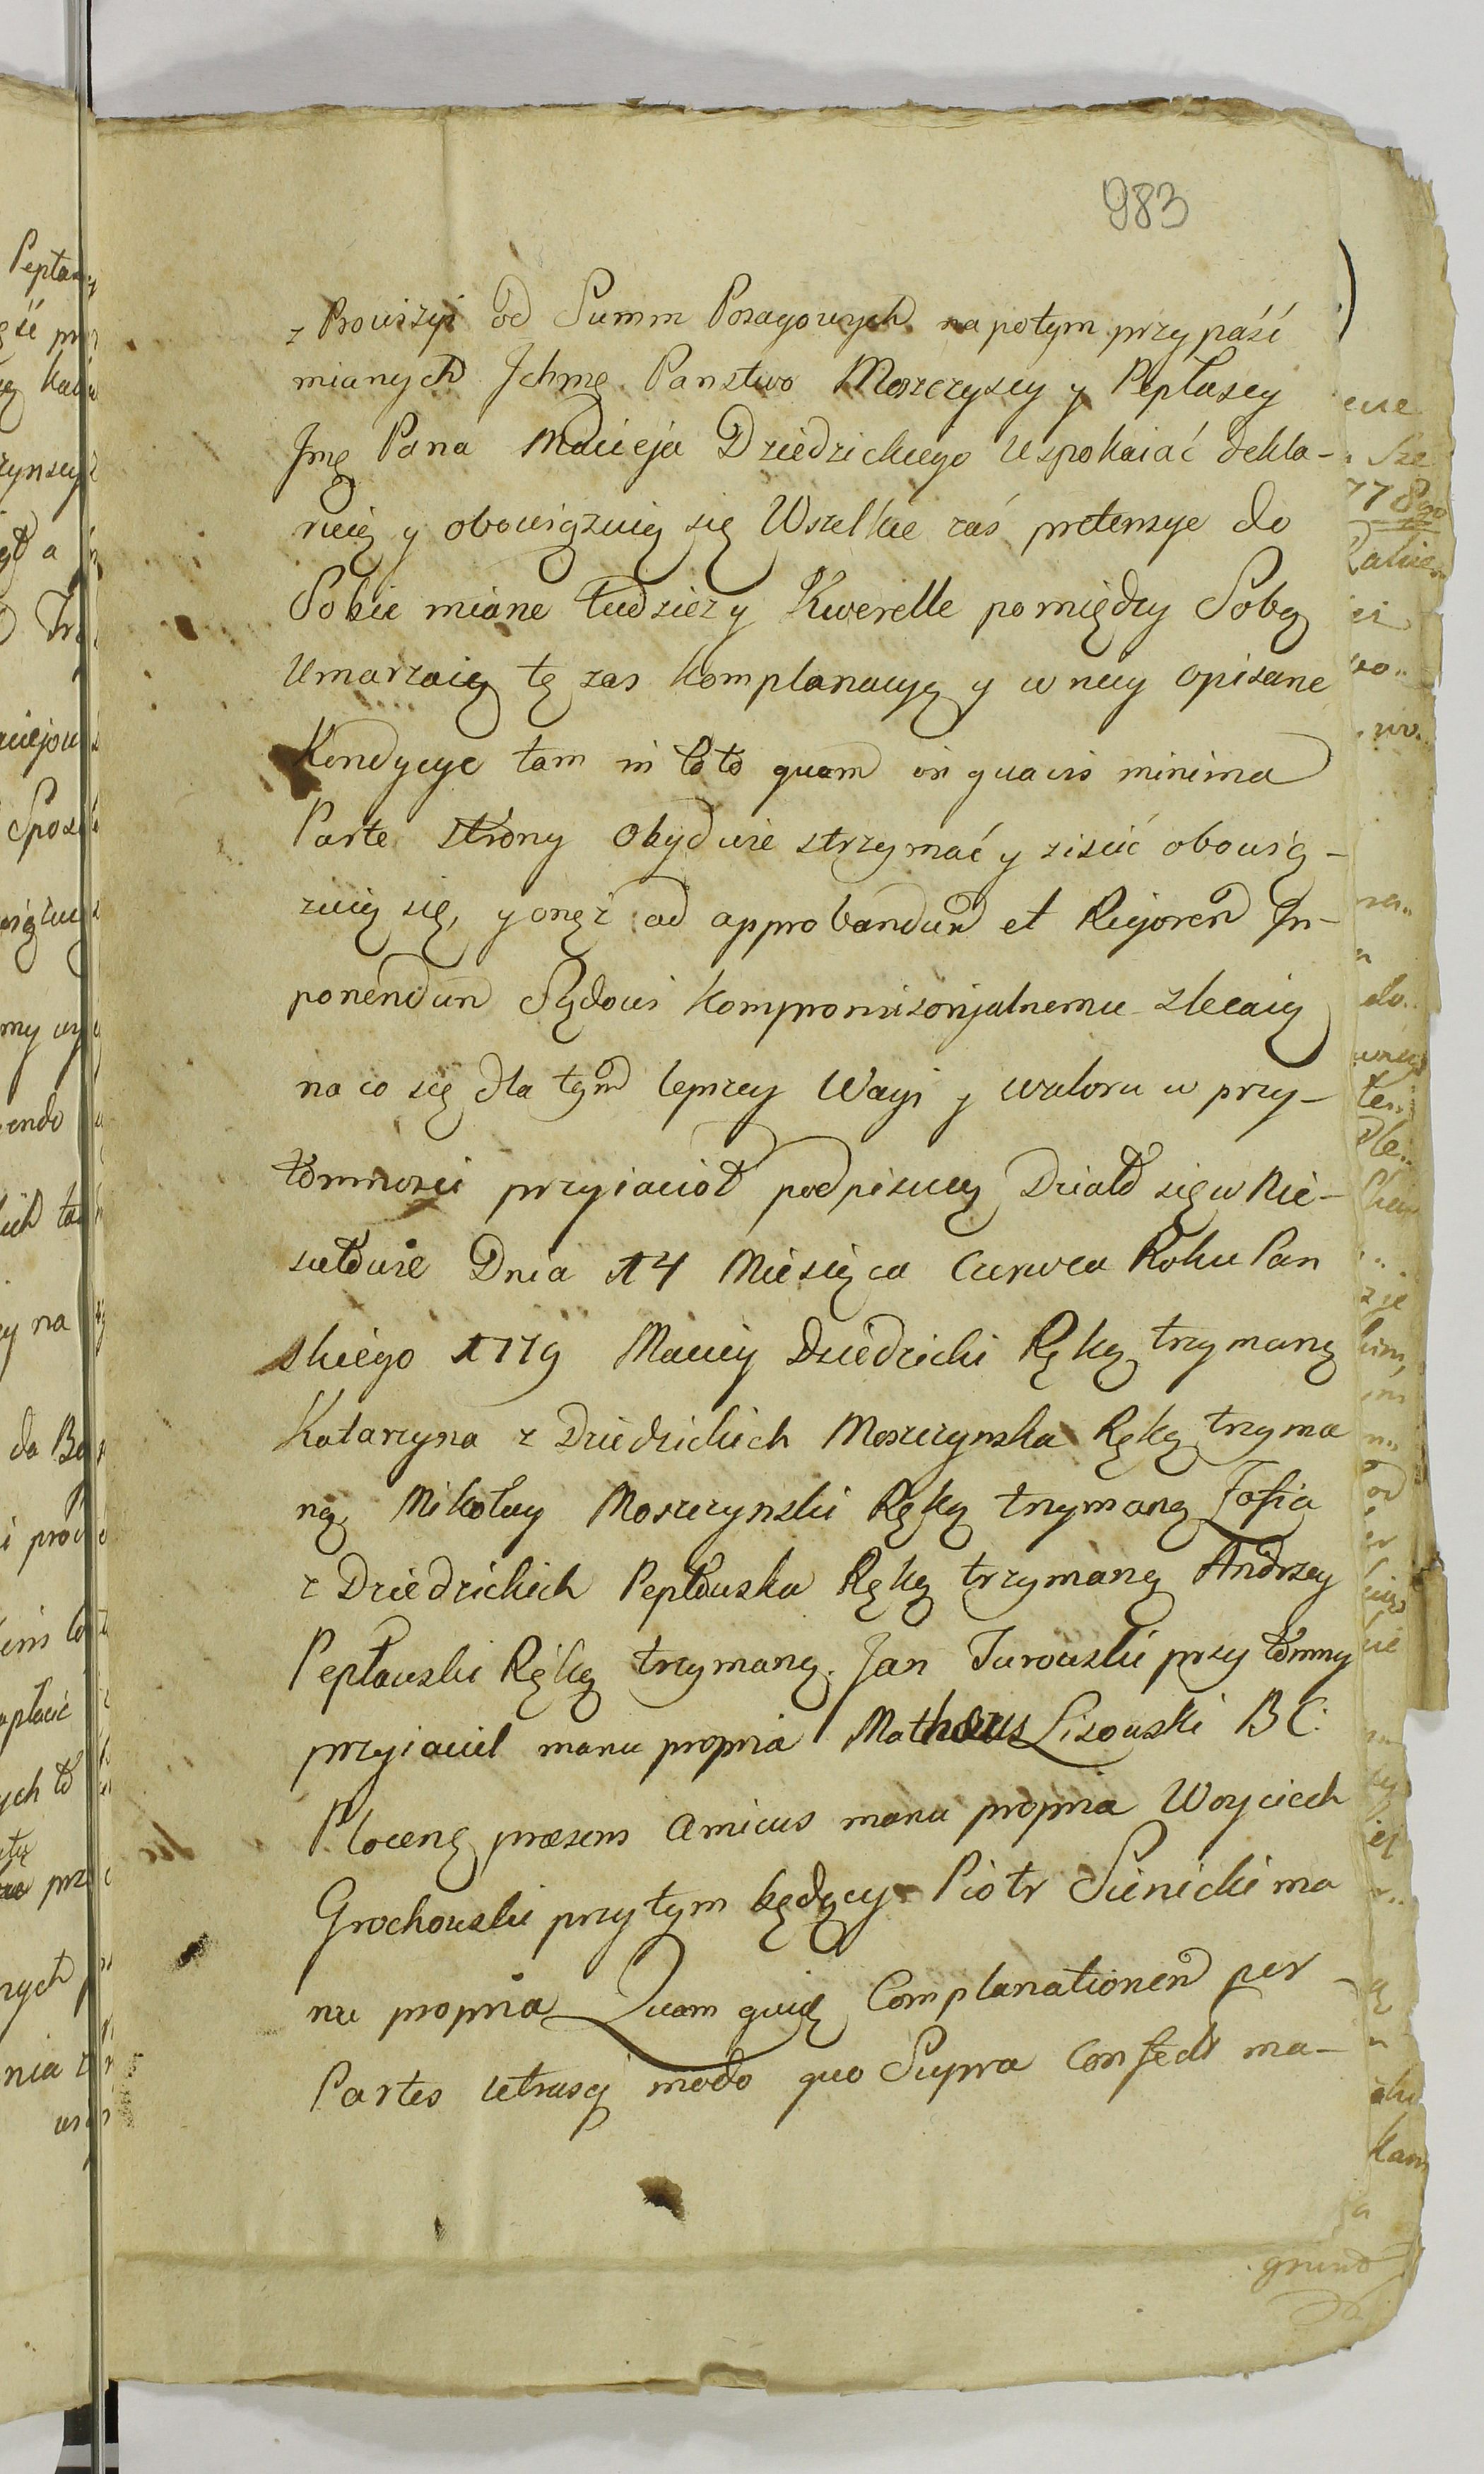 983
z Prowizyi od Summ Posagowych na potym przypaść
mianych Ichmę Panstwo Moszczyscy y Pepłascy
Jmę Pana Macieja Dziedzickiego Uspokaiać dekla-
ruią y obowiązuią się Wszelkie zaś pretensye do
Sobie miane tudziez y Kwerelle pomiędzy Sobą
Umarzaią tę zas Komplanacyę y w niey opisane
Kondycye tam in toto quam in quavis minima
Parte strony Obydwie strzymać y ziscić obowią-
zuią się, y onęż ad approbandum et Rigorem Im-
ponendum Sądowi Kompromissorjalnemu zlecaią
na co się dla tym lepszey Wagi y waloru w przy-
tomnosci przyiacioł podpisuię Działo się w Nie-
sułowie Dnia 14 Miesiąca Czerwca Roku Pan
skiego 1779 Maciey Dziedzicki Ręką trzymaną
Katarzyna z Dziedzickich Moszczynska Ręką trzyma
ną Mikołay Moszczynski Ręką trzymaną Zofia
z Dziedzickich Pepłowska Ręką trzymaną Andrzey
Pepłowski Ręką trzymaną. Jan Turowski przytomny
przyiaciel manu propria Matheus Lisowski B C:
Płocen præsens Amicus manu propria Woyciech
Grochowski przy tym będący Piotr Sienicki ma
nu propria Quam quid Complanationem per
Partes utrasq modo quo Supra Confect ma-
grunt